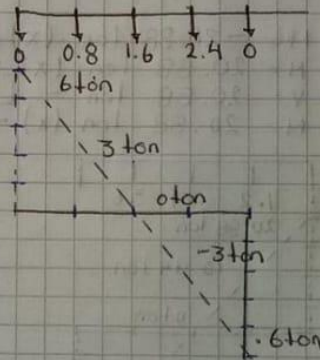 0 0.8 1.6 2.4 0
6 ton
3 ton
0 ton
-3 ton
. 6 ton